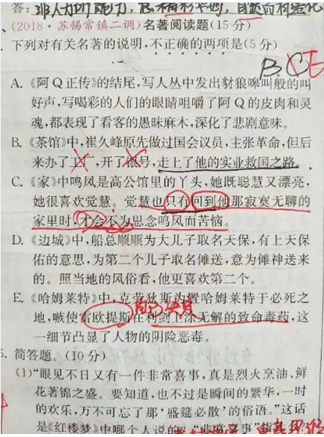 答:非人力所能为
(2018·苏锡常镇二调)名著阅读题(15分)
下列对有关名著的说明,不正确的两项是(5分)
B C E
A.《阿Q正传》的结尾,写人丛中发出豺狼嗥叫般的叫
好声,写喝彩的人们的眼睛咀嚼了阿Q的皮肉和灵
魂,都表现了看客的愚昧麻木,深化了悲剧意味。
B.《茶馆》中,崔久峰原先做过国会议员,主张革命,但后
来办了工厂,开了银号,走上了他的实业救国之路。
C.《家》中鸣凤是高公馆里的丫头,她既聪慧又漂亮,
她很喜欢觉慧。觉慧也只有回到他那寂寞无聊的
家里时,才会不为思念鸣凤而苦恼。
D.《边城》中,船总顺顺为大儿子取名天保,有上天保
佑的意思,为第二个儿子取名傩送,意为傩神送来
的。照当地的风俗看,他更喜欢第二个。
E.《哈姆莱特》中,克劳狄斯为置哈姆莱特于必死之
地,唆使雷欧提斯在剑上涂无解的致命毒药,这
一细节凸显了人物的阴险恶毒。
简答题。(10分)
(1)“眼见不日又有一件非常喜事,真是烈火烹油、鲜
花著锦之盛。要知道,也不过是瞬间的繁华,一时
的欢乐,万不可忘了那‘盛筵必散’的俗语。”这话
是《红楼梦》中哪个人说的